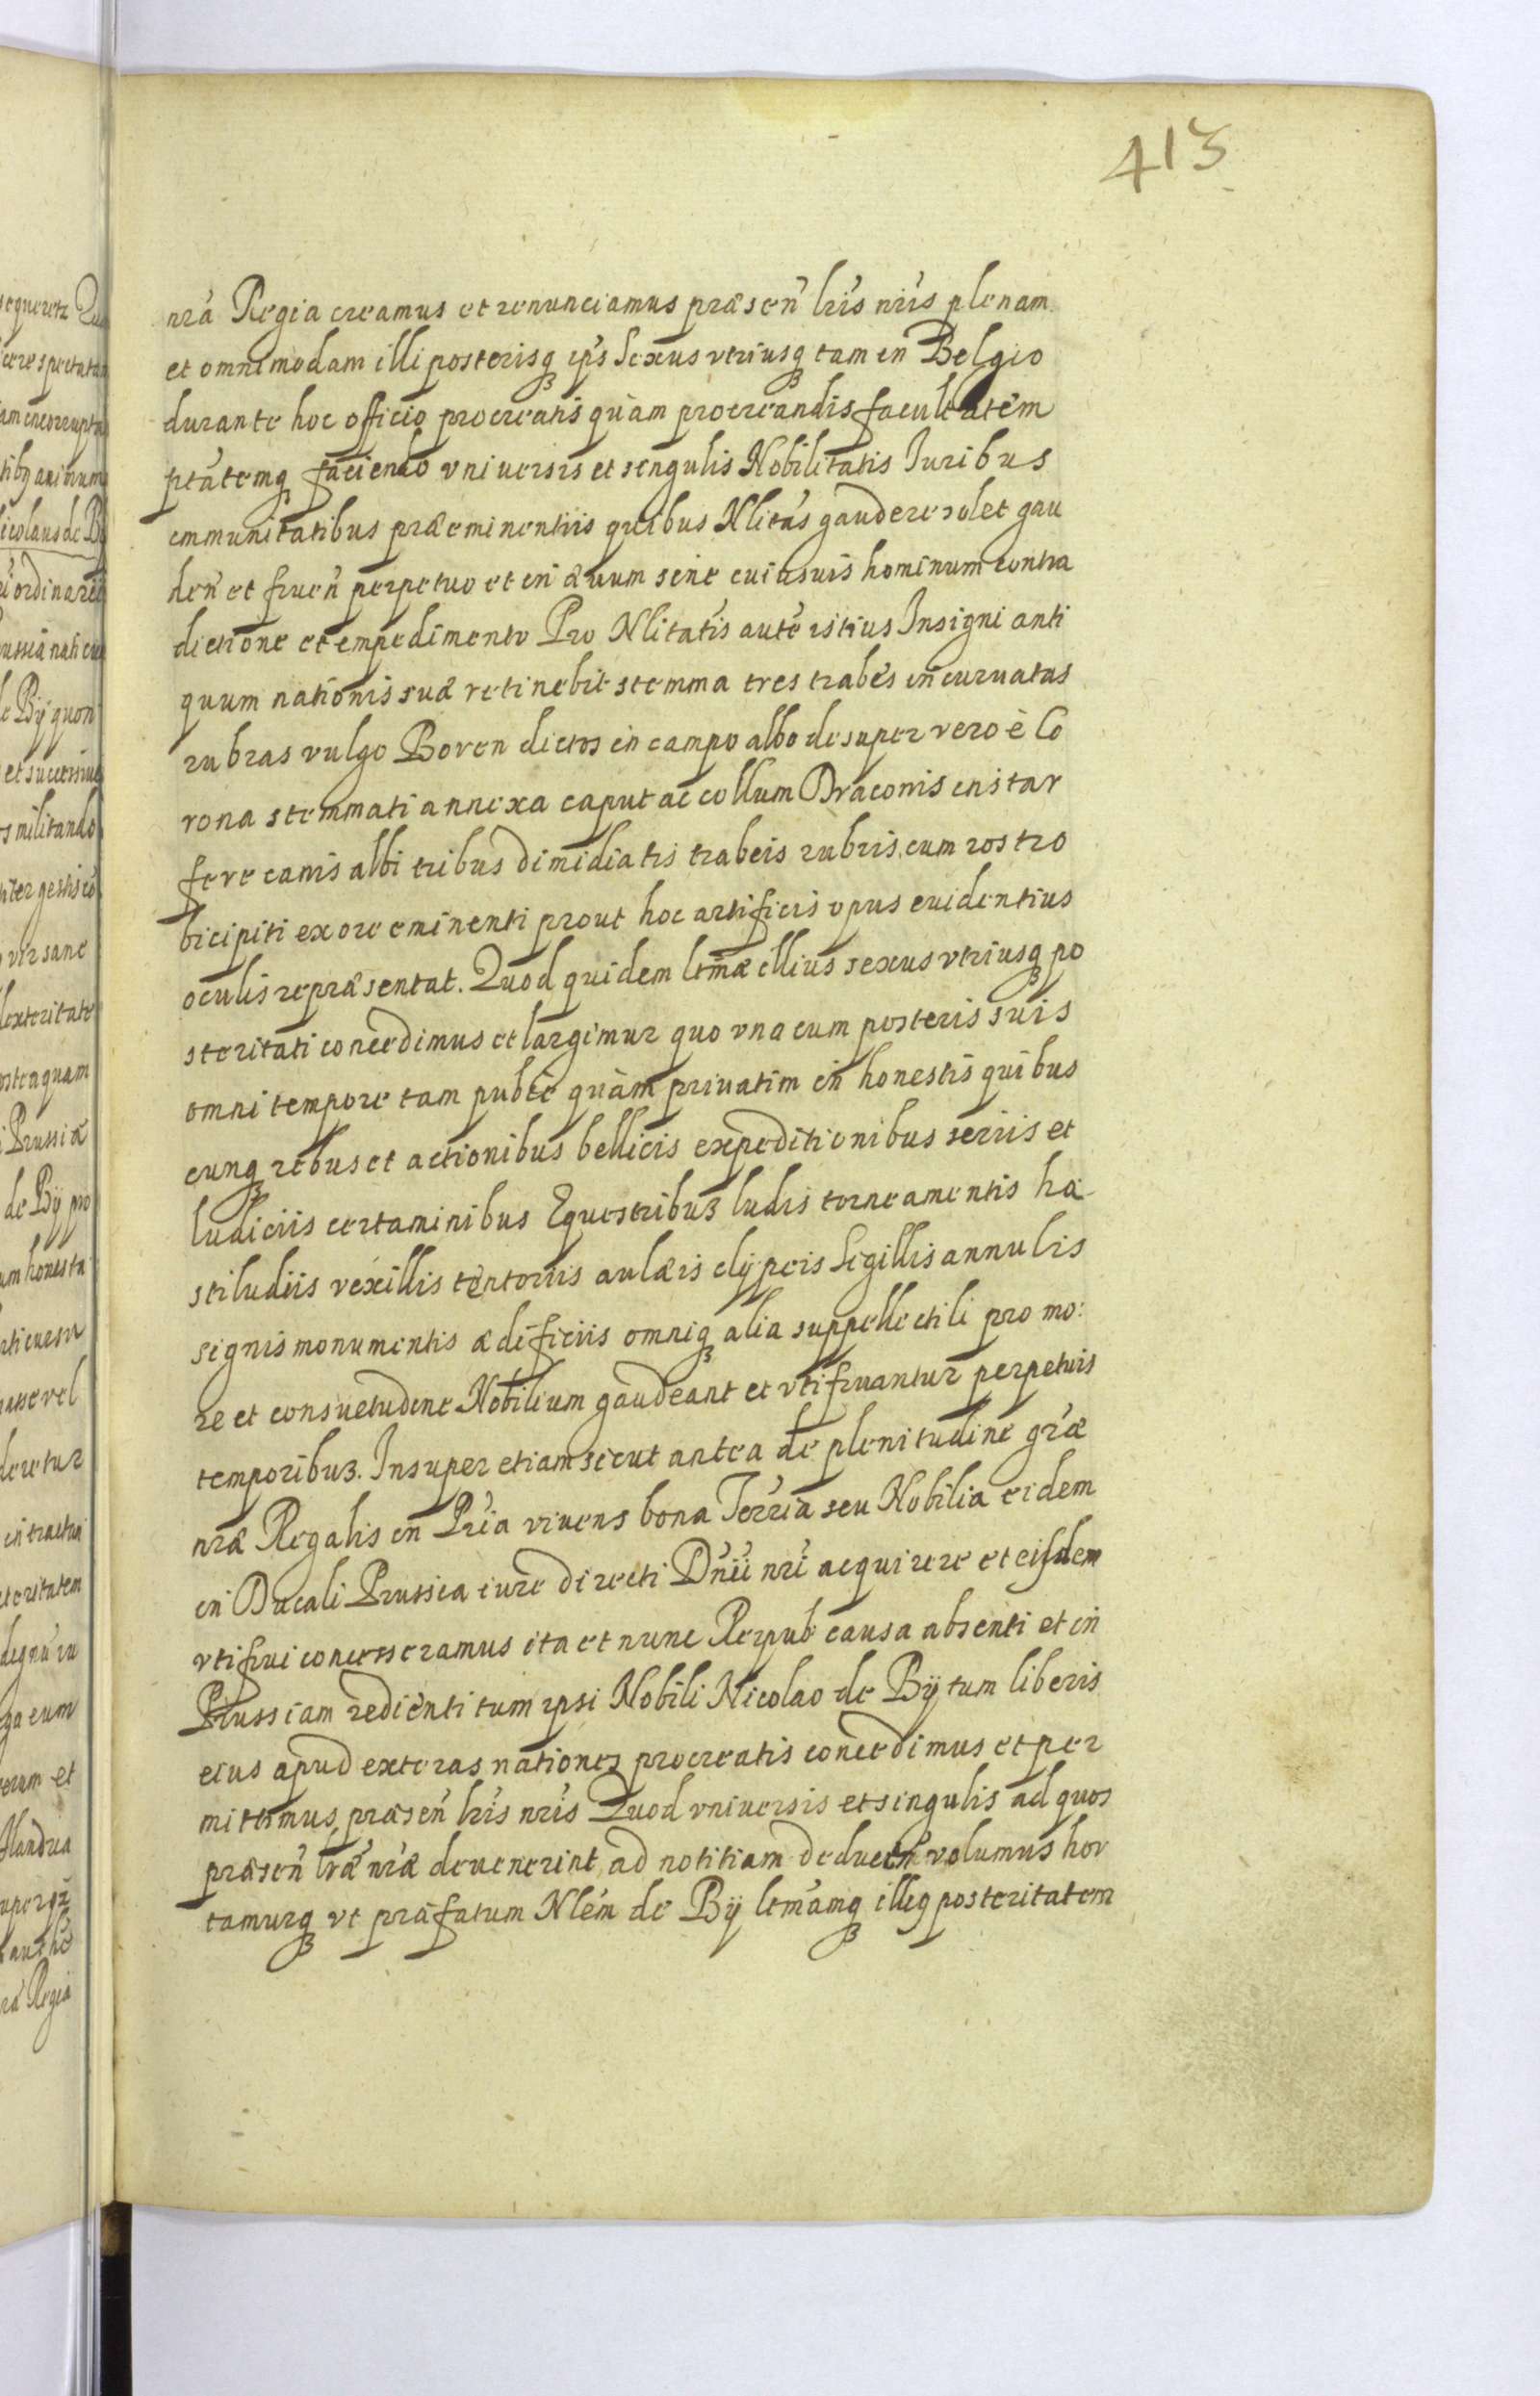 413
nrã Regia creamus et renunciamus præsen̄ lrīs nrīs plenam
et omnimodam illi posterisq ip̄s Sexus vtriusq tam in Belgio
durante hoc officio procreatis quàm procreandis facultatem
ptātemq faciendo vniversis et singulis Nobilitatis Iuribus
immunitatibus præeminentiis quibus Nlitas gaudere solet gau
den̄ et fruen̄ perpetuo et in ævum sine cuiusuis hominum contra
dictione et impedimento Pro Nlitatis autē istius Insigni anti
quum nationis suæ retinebit stemma tres trabes incuruatas
rubras vulgo Boven dictos in campo albo desuper vero è Co
rona stemmati annexa caput ac collum Draconis instar
fere canis albi tribus dimidiatis trabeis rubris cum rostro
bicipiti ex ore eminenti prout hoc artificis opus euidentius
oculis repræsentat. Quod quidem ltmæ illius sexus vtriusq po
steritati concedimus et largimur quo vna cum posteris suis
omni tempore tam publē quàm privatim in honestis quibus
cunq rebus et actionibus bellicis expeditionibus seriis et
ludicriis certaminibus Equestribus ludis torneamentis ha
stiludiis vexillis tentoriis aulæis clypeis Sigillis annulis
signis monumentis ædificiis omniq alia suppellectili pro mo:
re et consuetudine Nobilium gaudeant et vtifruantur perpetuis
temporibus. Insuper etiam sicut antea de plenitudine græ
nræ Regalis in Pria vivens bona Terria seu Nobilia eidem
in Ducali Prussia iure directi Dnii nri acquirere et eisdem
vtifrui concesseramus ita et nunc Reipub causa absenti et in
Prussiam redienti tum ipsi Nobili Nicolao de Bÿ tum liberis
eius apud exteras nationes procreatis concedimus et per
mittimus præsen̄ lrīs nrīs Quod vniversis et singulis ad quos
præsen̄ lræ nræ devenerint, ad notitiam deducen̄ volumus hor
tamurq vt præfatum Nlem de Bÿ ltmamq illiq posteritatem